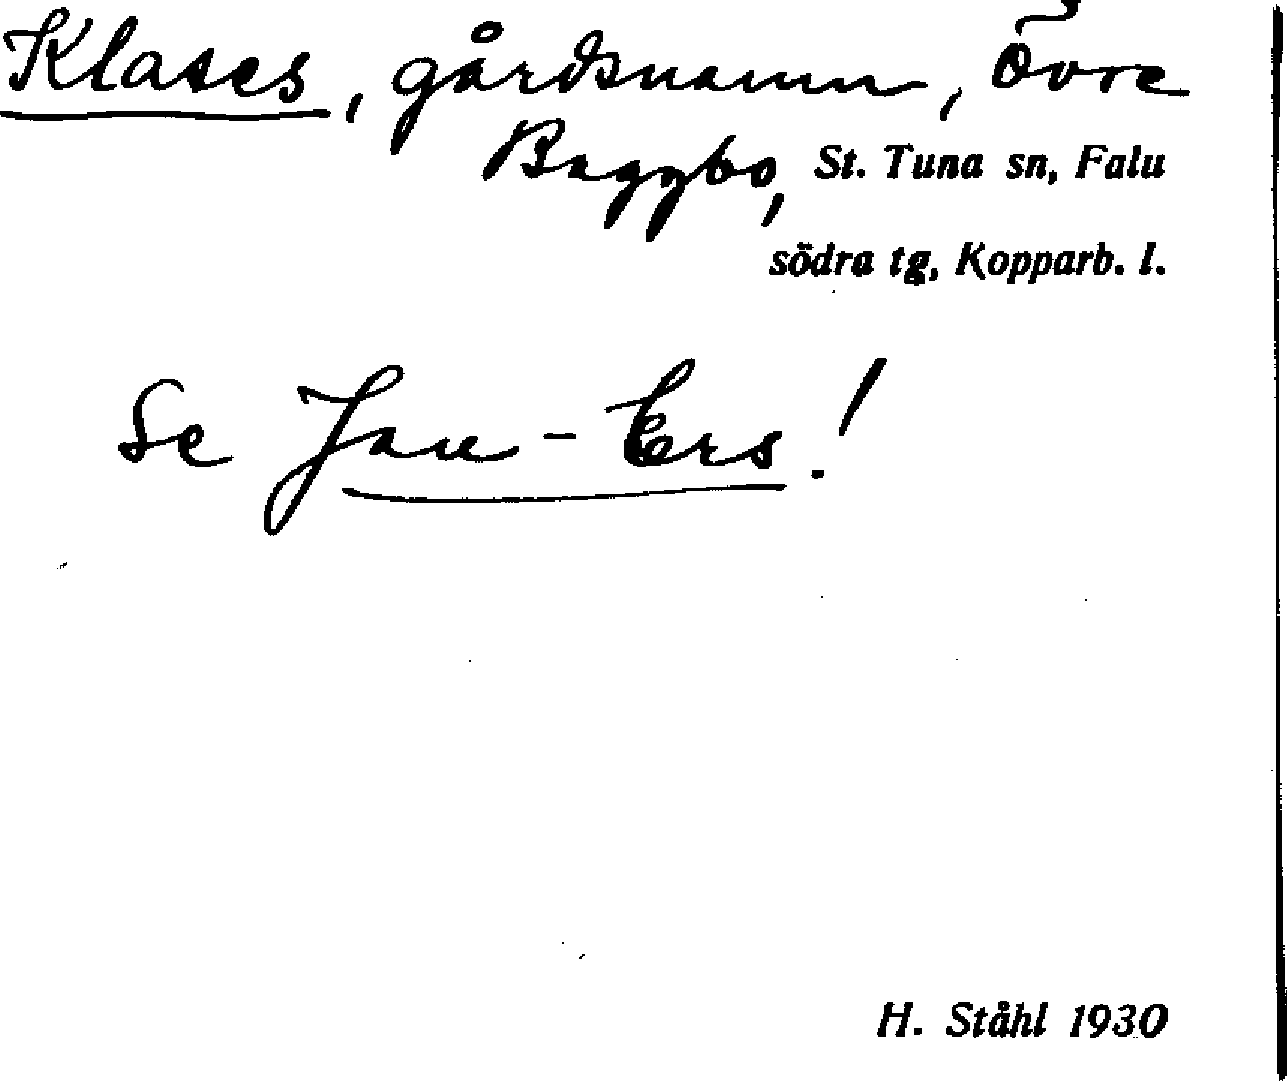 Klases, gårdsnamn, Övre
Baggbo, St. Tuna sn, Falu
södra tg, Kopparb. l.
Se Jan-Ers!
H. Ståhl 1930